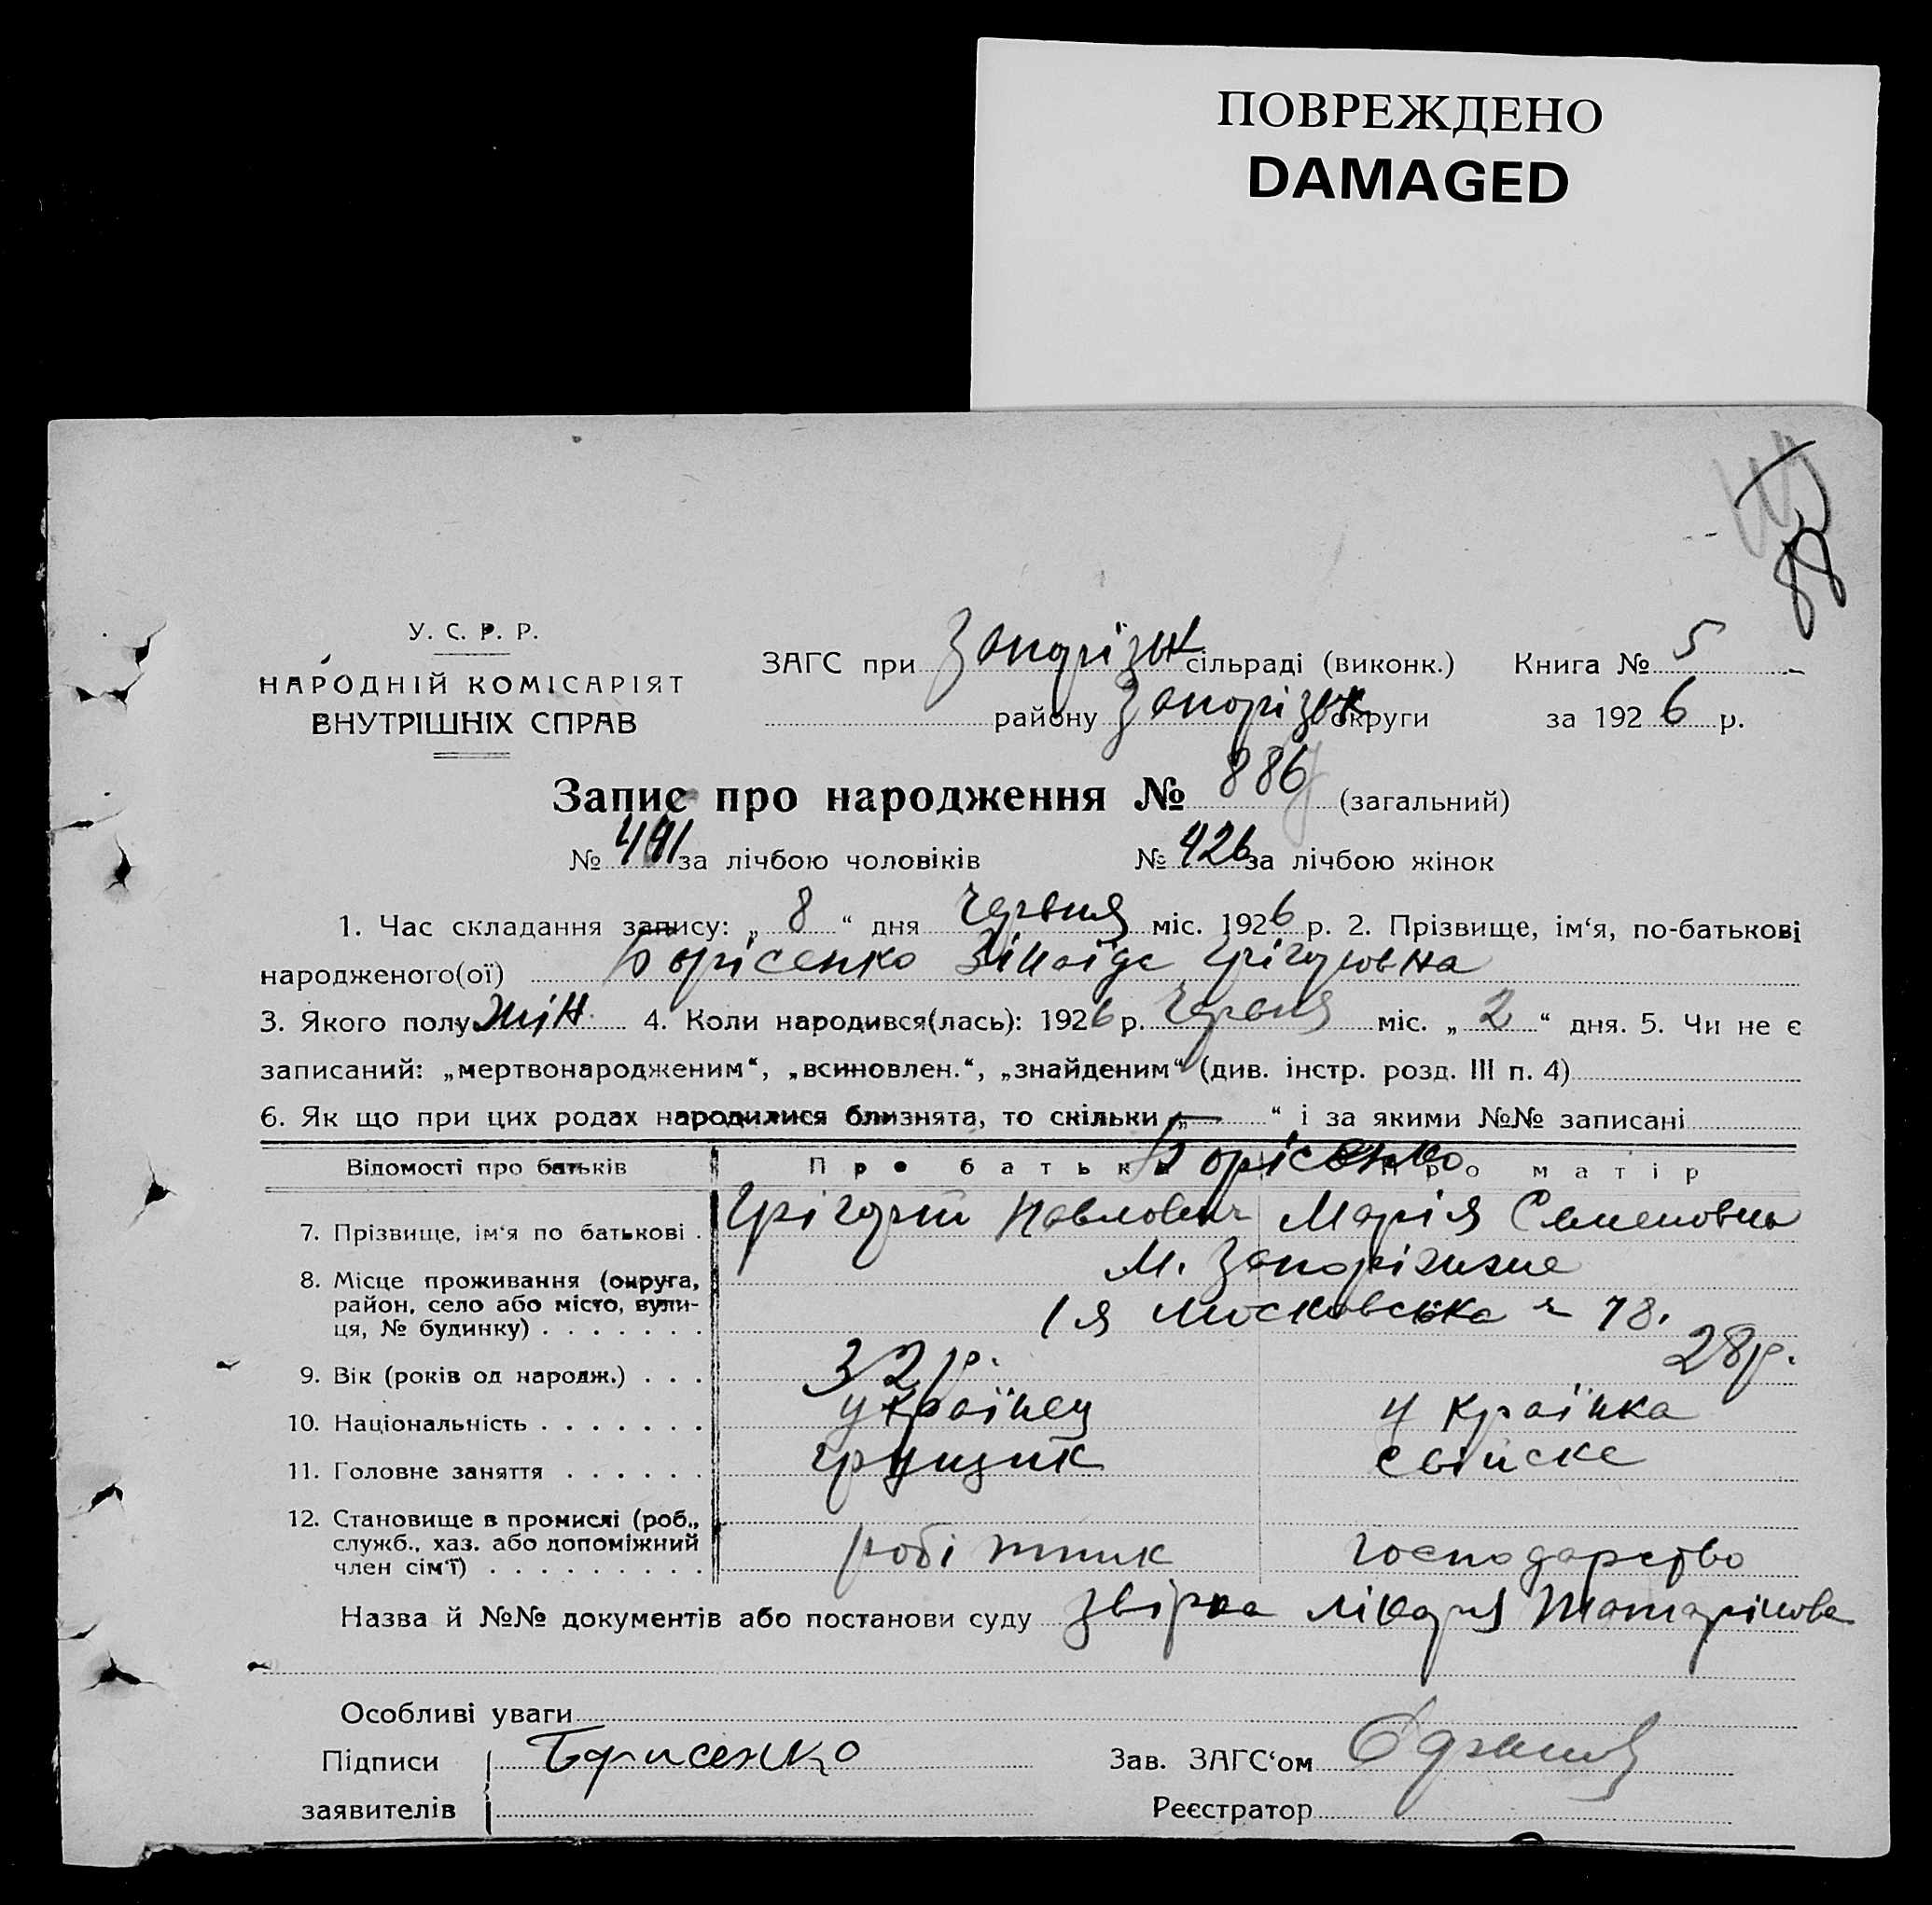 ПОВРЕЖДЕНО
DAMAGED
88
У. С. Р. Р.
НАРОДНІЙ КОМІСАРІЯТ
ВНУТРІШНІХ СПРАВ
ЗАГС при Запорізьк сільраді (виконк.) Книга № 5
району Запорізьк округи за 1926 р.
Запис про народження № 886 (загальний)
№ за лічбою чоловіків № 426 за лічбою жінок
1. Час складання запису: „ 8 “ дня Червня міс. 1926 р. 2. Прізвище, ім‘я, по-батькові
народженого(ої) Борісенко Зінаїда Грігоровна
3. Якого полу жін. 4. Коли народився(лась): 1926 р. Червня міс. „ 2 “ дня. 5. Чи не є
записаний: „мертвонародженим“, „всиновлен.“, „знайденим“ (див. інстр. розд. III п. 4)
6. Як що при цих родах народилися близнята, то скільки „ — “ і за якими №№ записані
Відомості про батьків Про батька Про матір
Борісенко
7. Прізвище, ім‘я по батькові . Грігорій Павлович Марія Семеновна
8. Місце проживання (округа, м. Запоріжжє
район, село або місто, вули-
ця, № будинку) . . . . . . . 1 я Московська 78.
9. Вік (років од народж.) . . . 32 р. 28 р.
10. Національність . . . . . . . українец українка
11. Головне заняття . . . . . . грущик свійске
12. Становище в промислі (роб.,
служб., хаз. або допоміжний робітник господарство
член сім‘ї) . . . . . . . . .
Назва й №№ документів або постанови суду звірка лікаря Татарінова
Особливі уваги
Підписи Борисенко Зав. ЗАГС‘ом
заявителів Реєстратор